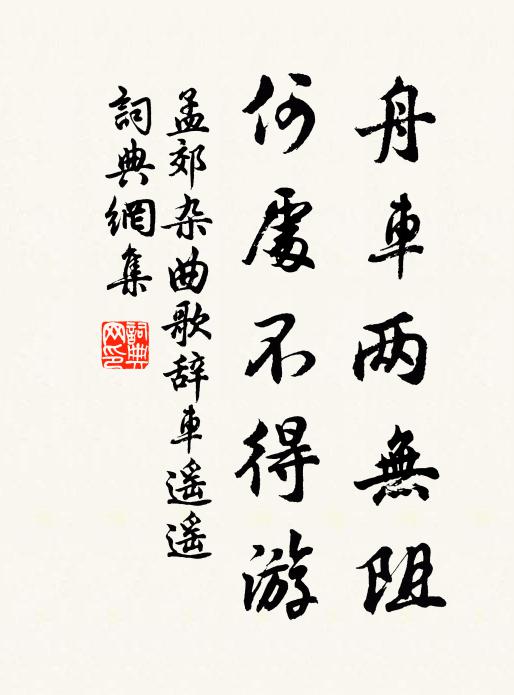 舟車两無阻
何處不得游
孟郊杂曲歌辞車遥遥
詞典網集
詞典网印